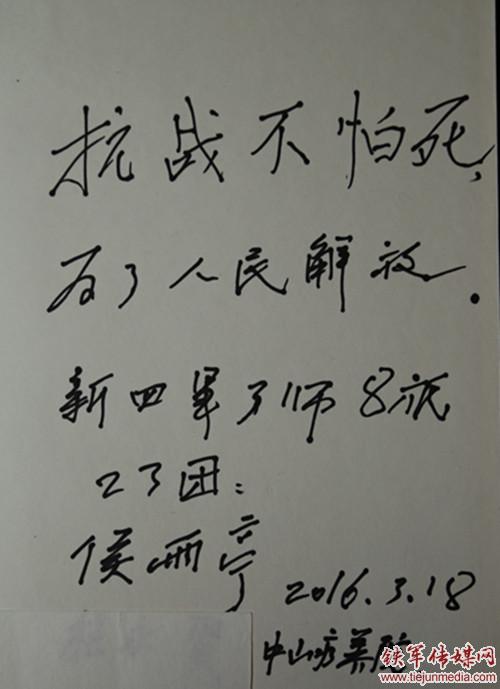 抗战不怕死,
为了人民解放.
新四军3师8旅
23团:
侯
2016.3.18
中山疗养院
铁军传媒网
www.tiejunmedia.com